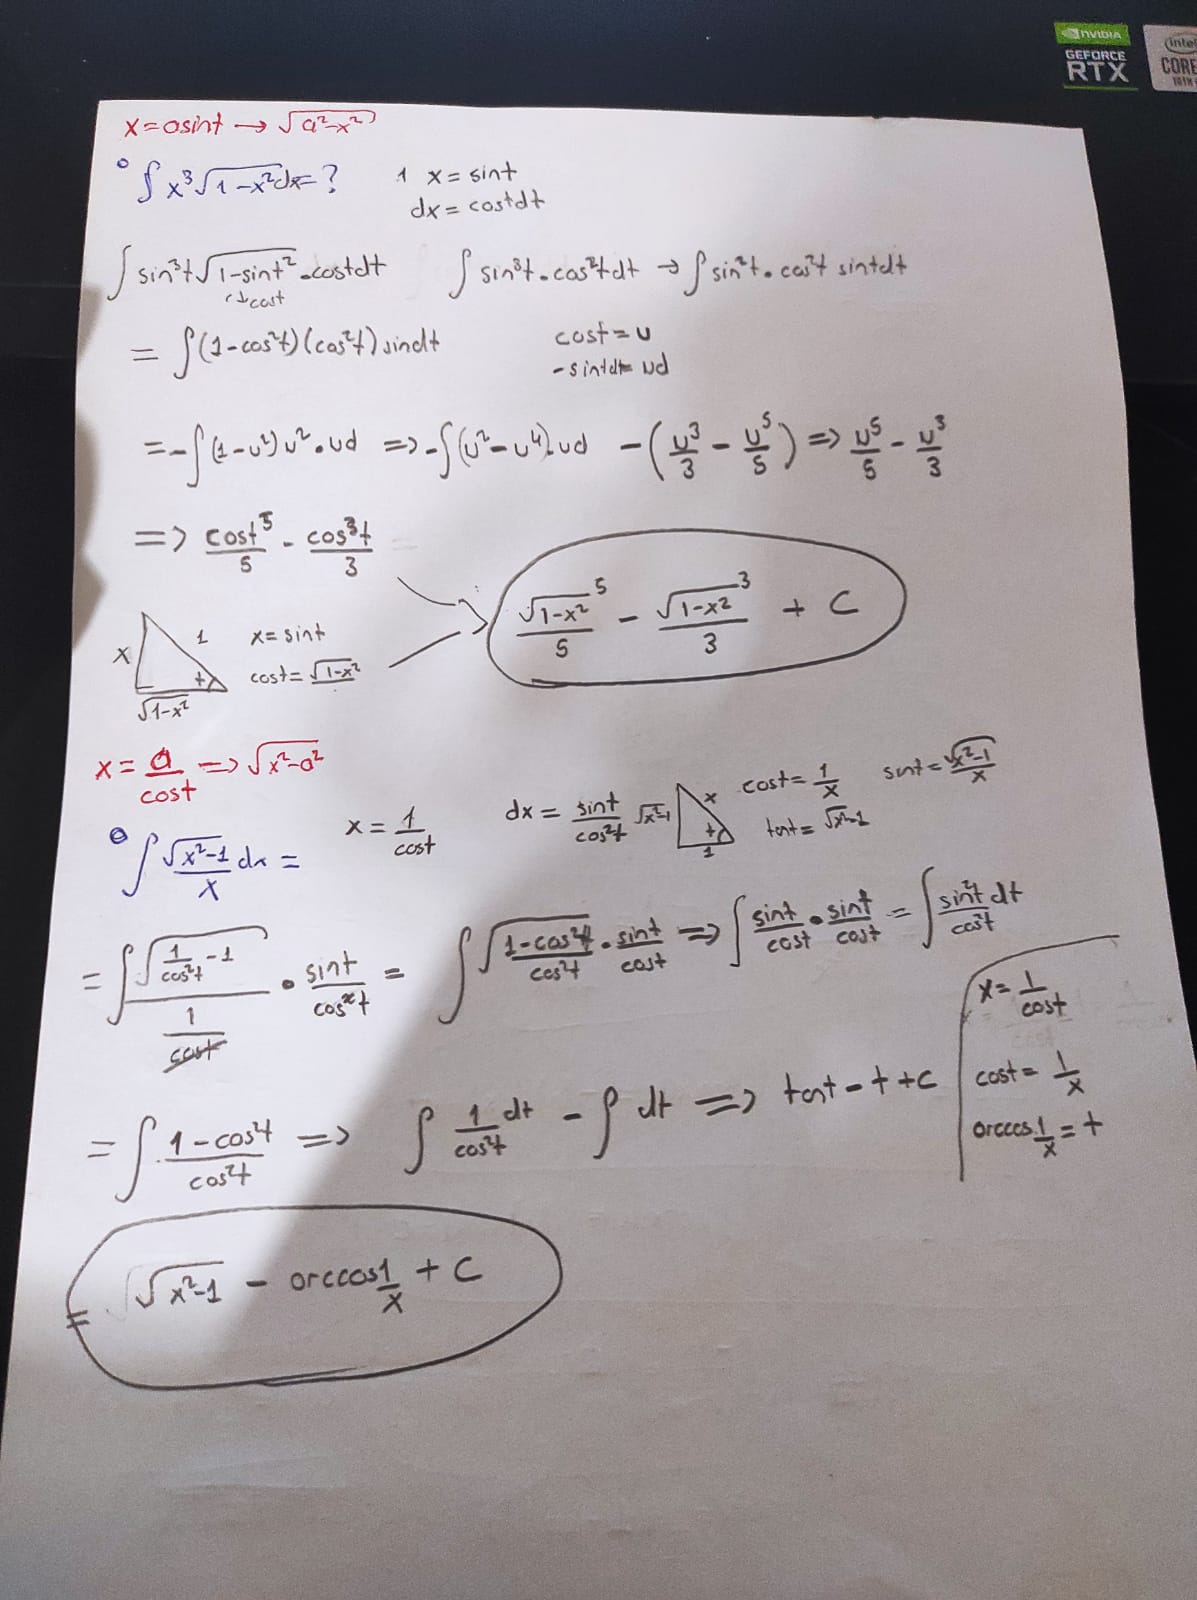 NVIDIA
GEFORCE
RTX
intel
CORE
10TH
x = asint → √(a²-x²)
∫ x³√(1-x²) dx = ?
1 x = sint
dx = costdt
∫ sin³t √(1-sint²) . costdt
↳ cost
∫ sin³t . cos²t dt → ∫ sin²t . cos²t sintdt
= ∫ (1-cos²t) (cos²t) sindt
cost = u
-sintdt = ud
= -∫ (1-u²) u² . ud => -∫ (u²-u⁴). ud - (u³/3 - u⁵/5) => u⁵/5 - u³/3
=> cost⁵/5 - cos³t/3
√(1-x²)⁵/5 - √(1-x²)³/3 + C
x 1 t √(1-x²)
x = sint
cost = √(1-x²)
x = a/cost => √(x²-a²)
∫ √(x²-1)/x dx =
x = 1/cost
dx = sint/cos²t
√(x²-1) x t 1
cost = 1/x
sint = √(x²-1)/x
tant = √(x²-1)
= ∫ √(1/cos²t - 1) / (1/cost) . sint/cos²t = ∫ √((1-cos²t)/cos²t) . sint/cost => ∫ sint/cost . sint/cost = ∫ sin²t/cos²t dt
x = 1/cost
cost = 1/x
arccos 1/x = t
= ∫ (1-cos²t)/cos²t => ∫ 1/cos²t dt - ∫ dt => tant - t + c
= √(x²-1) - arccos 1/x + C